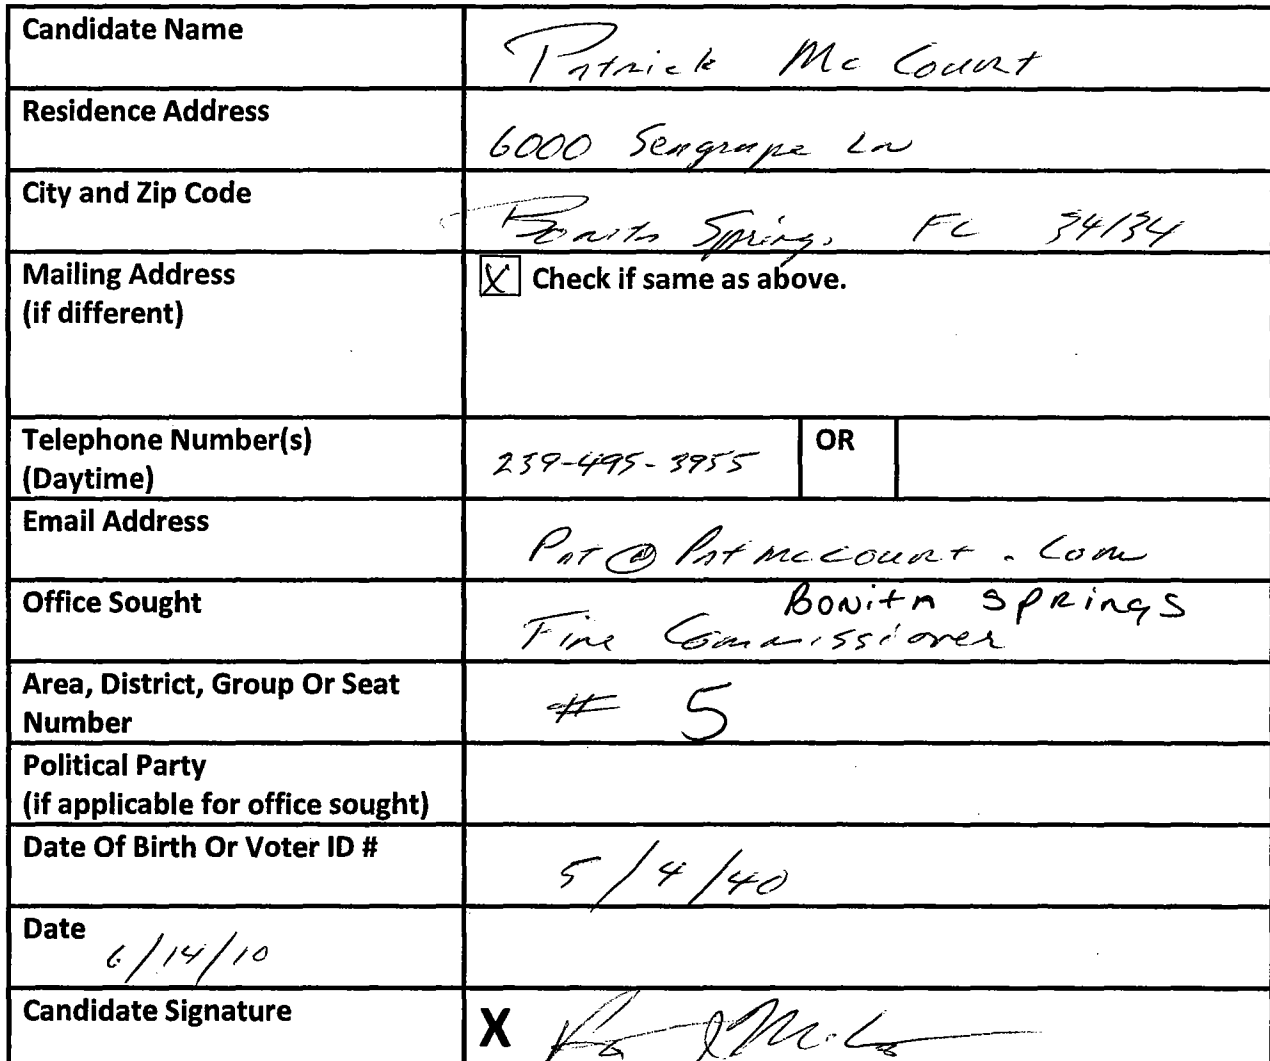 Candidate Name Patrick Mc Court
Residence Address 6000 Seagrape Ln
City and Zip Code Bonita Springs FL 34134
Mailing Address
(if different)
X Check if same as above.
Telephone Number(s)
(Daytime)
239-495-3955 OR
Email Address Pat@Patmccourt.com
Office Sought Bonita Springs
Fire Commissioner
Area, District, Group Or Seat
Number
# 5
Political Party
(if applicable for office sought)
Date Of Birth Or Voter ID # 5/4/40
Date 6/14/10
Candidate Signature X